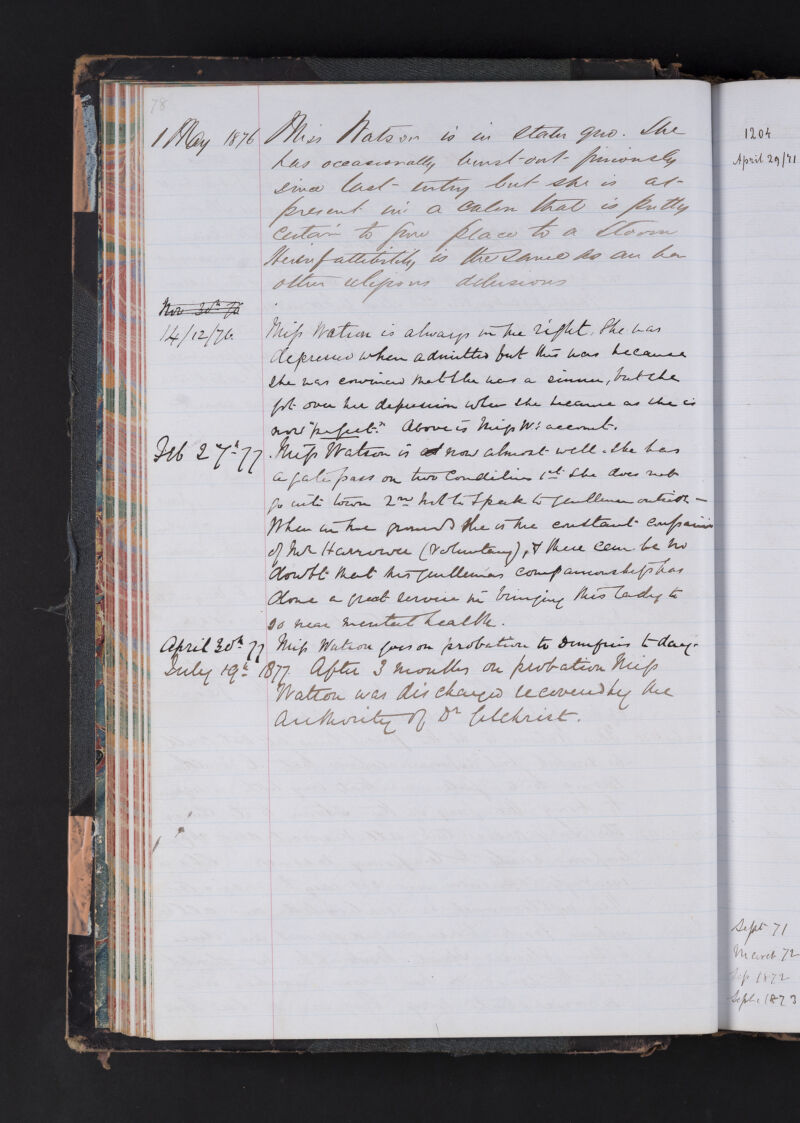 78
1 May 1876 Miss Watson is in statu quo. She
has occasionally burst out furiously
since last entry but she is at
present in a calm that is pretty
certain to give place to a storm
Her infallibility is the same as all her
other religious delusions
Nov 30th 76
14/12/76. Miss Watson is always in the right. She was
depressed when admitted but this was because
she was convinced that she was a sinner, but she
got over her depression when she became as she is
now "perfect". Above is Miss W's account.
Feb 27th 77. Miss Watson is now almost well. She has
a gate pass on two conditions 1st She does not
go into town 2nd Not to speak to gentlemen outside —
When in the grounds she is the constant companion
of Mr Harrower (voluntary), & there can be no
doubt that this gentleman's companionship has
done a great service in bringing this lady to
so near mental health.
April 30th 77 Miss Watson goes on probation to Dumfries to day.
July 19th 1877 After 3 months on probation Miss
Watson was discharged recovered by the
authority of Dr Gilchrist.
1204
April 29/71
Sept 71
March 72
Sep 1872
Septr 1873